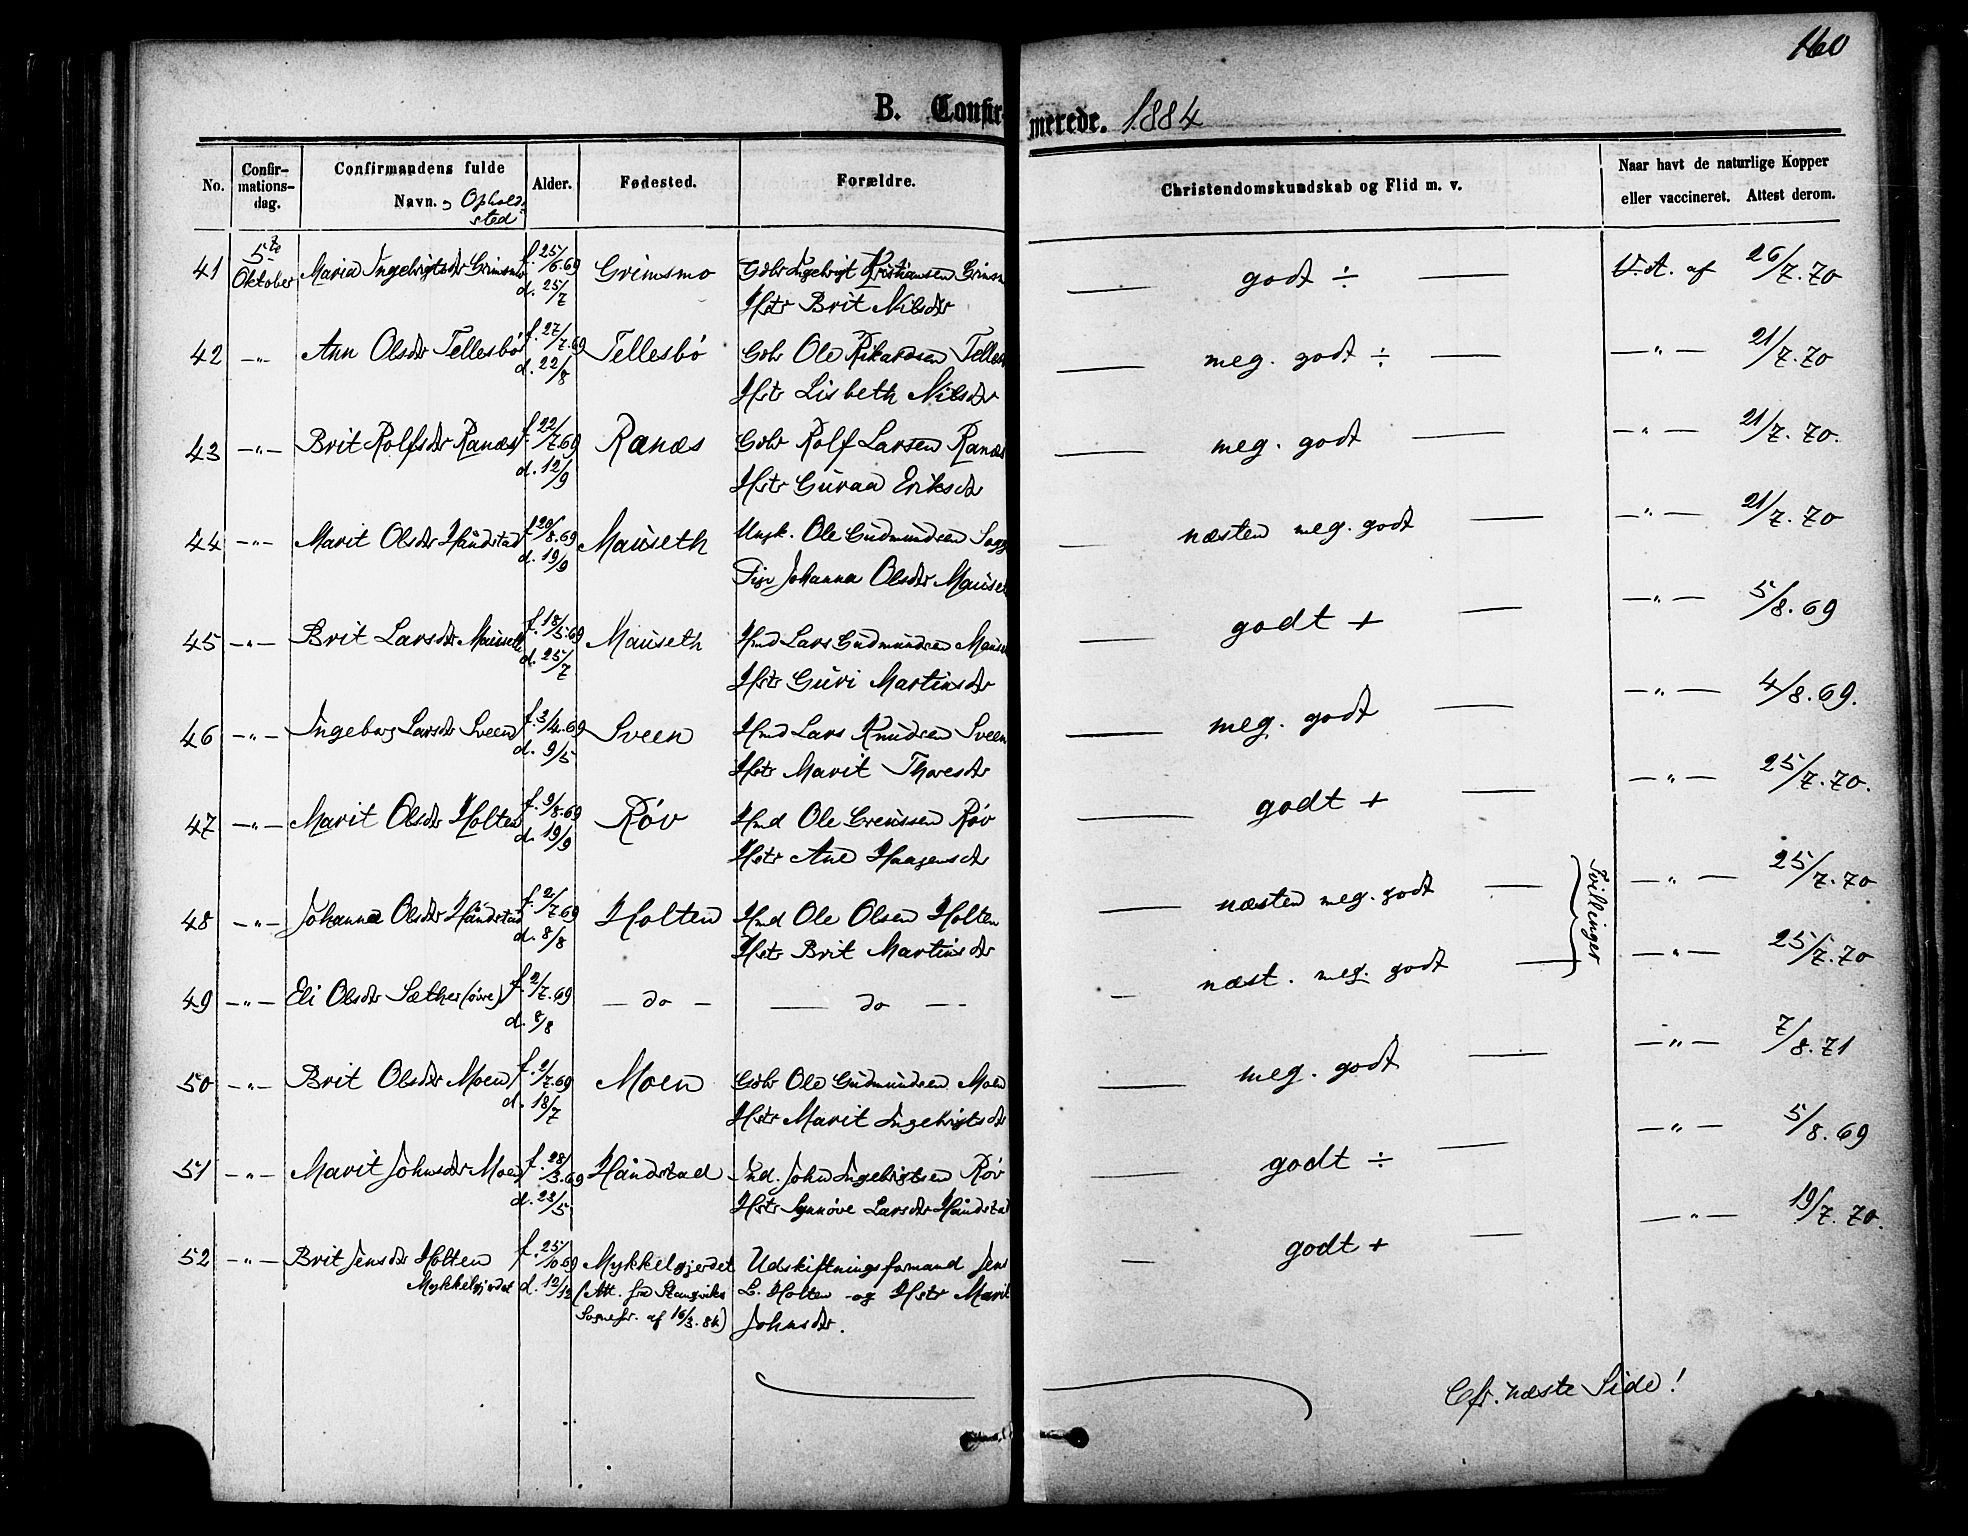 160
B. Confirmerede. 1884
No.
Confirmations-dag.
Confirmandens fulde
Navn. og Opholds-
sted
Alder.
Fødested.
Forældre.
Christendomskundskab og Flid m. v.
Naar havt de naturlige Kopper
eller vaccineret. Attest derom.
41 5te Oktober Maria Ingebrigtsdr Grimsmo f. 25/6.69 Grimsmo Gbr Ingebrigt Kristiansen Grimsm — godt ÷ — V.A. af 26/7.70
d. 25/7 Hstr Brit Nilsdr
42 —"— Ann Olsdr Tellesbø f. 27/7.69 Tellesbø Gbr Ole Rikardsen Telles — meg. godt ÷ — —"— 21/7.70
d. 22/8 Hstr Lisbeth Nilsdr
43 —"— Brit Rolfsdr Ranæs f. 22/7.69 Ranæs Gbr Rolf Larsen Ranæs — meg. godt — —"— 21/7.70.
d. 12/9 Hstr Guraa Eriksdr
44 —"— Marit Olsdr Håndstad f. 20/8.69 Mauseth Ungk. Ole Gudmundsen Sogg — næsten meg. godt — —"— 21/7.70
d. 19/9 Pige Johanna Olsdr Mause
45 —"— Brit Larsdr Mauseth f. 18/5.69 Mauseth Hmd Lars Gudmundsen Mause — godt + — —"— 5/8.69
d. 25/7 Hstr Guri Martinsdr
46 —"— Ingeborg Larsdr Sveen f. 3/4.69 Sveen Hmd Lars Knudsen Sveen — meg. godt — —"— 4/8.69.
d. 9/5 Hstr Marit Thoresdr
47 —"— Marit Olsdr Holten f. 9/8.69 Røv Hmd Ole Brenssen Røv — godt + — —"— 25/7.70.
d. 19/9 Hstr Ane Haagensdr
48 —"— Johanna Olsdr Håndstad f. 2/7.69 Holten Hmd Ole Olsen Holten — næsten meg. godt — —"— 25/7.70
d. 8/8 Hstr Brit Martinsdr
Tvillinger
49 —"— Eli Olsdr Sæther (øvre) f. 2/7.69 — do — — do — — næst. meg. godt — —"— 25/7.70
d. 8/8
50 —"— Brit Olsdr Moen f. 2/7.69 Moen Gbr Ole Gudmundsen Moen — meg. godt — —"— 7/8.71
d. 18/7 Hstr Marit Ingebrigtsdr
51 —"— Marit Johnsdr Moen f. 28/3.69 Håndstad Ind. John Ingebrigtsen Røv — godt ÷ — —"— 5/8.69
d. 23/5 Hstr Synnøve Larsdr Håndstad
52 —"— Brit Jensdr Holten f. 25/10.69 Mykkelgjerdet Udskiftningsformand Jens — godt + — —"— 19/7.70.
Mykkelgjerdet d. 12/12 (Att. fra Stangviks L. Holten og Hstr Marit
Sognepr. af 16/3.84) Johnsdr.
Cfr. næste Side!